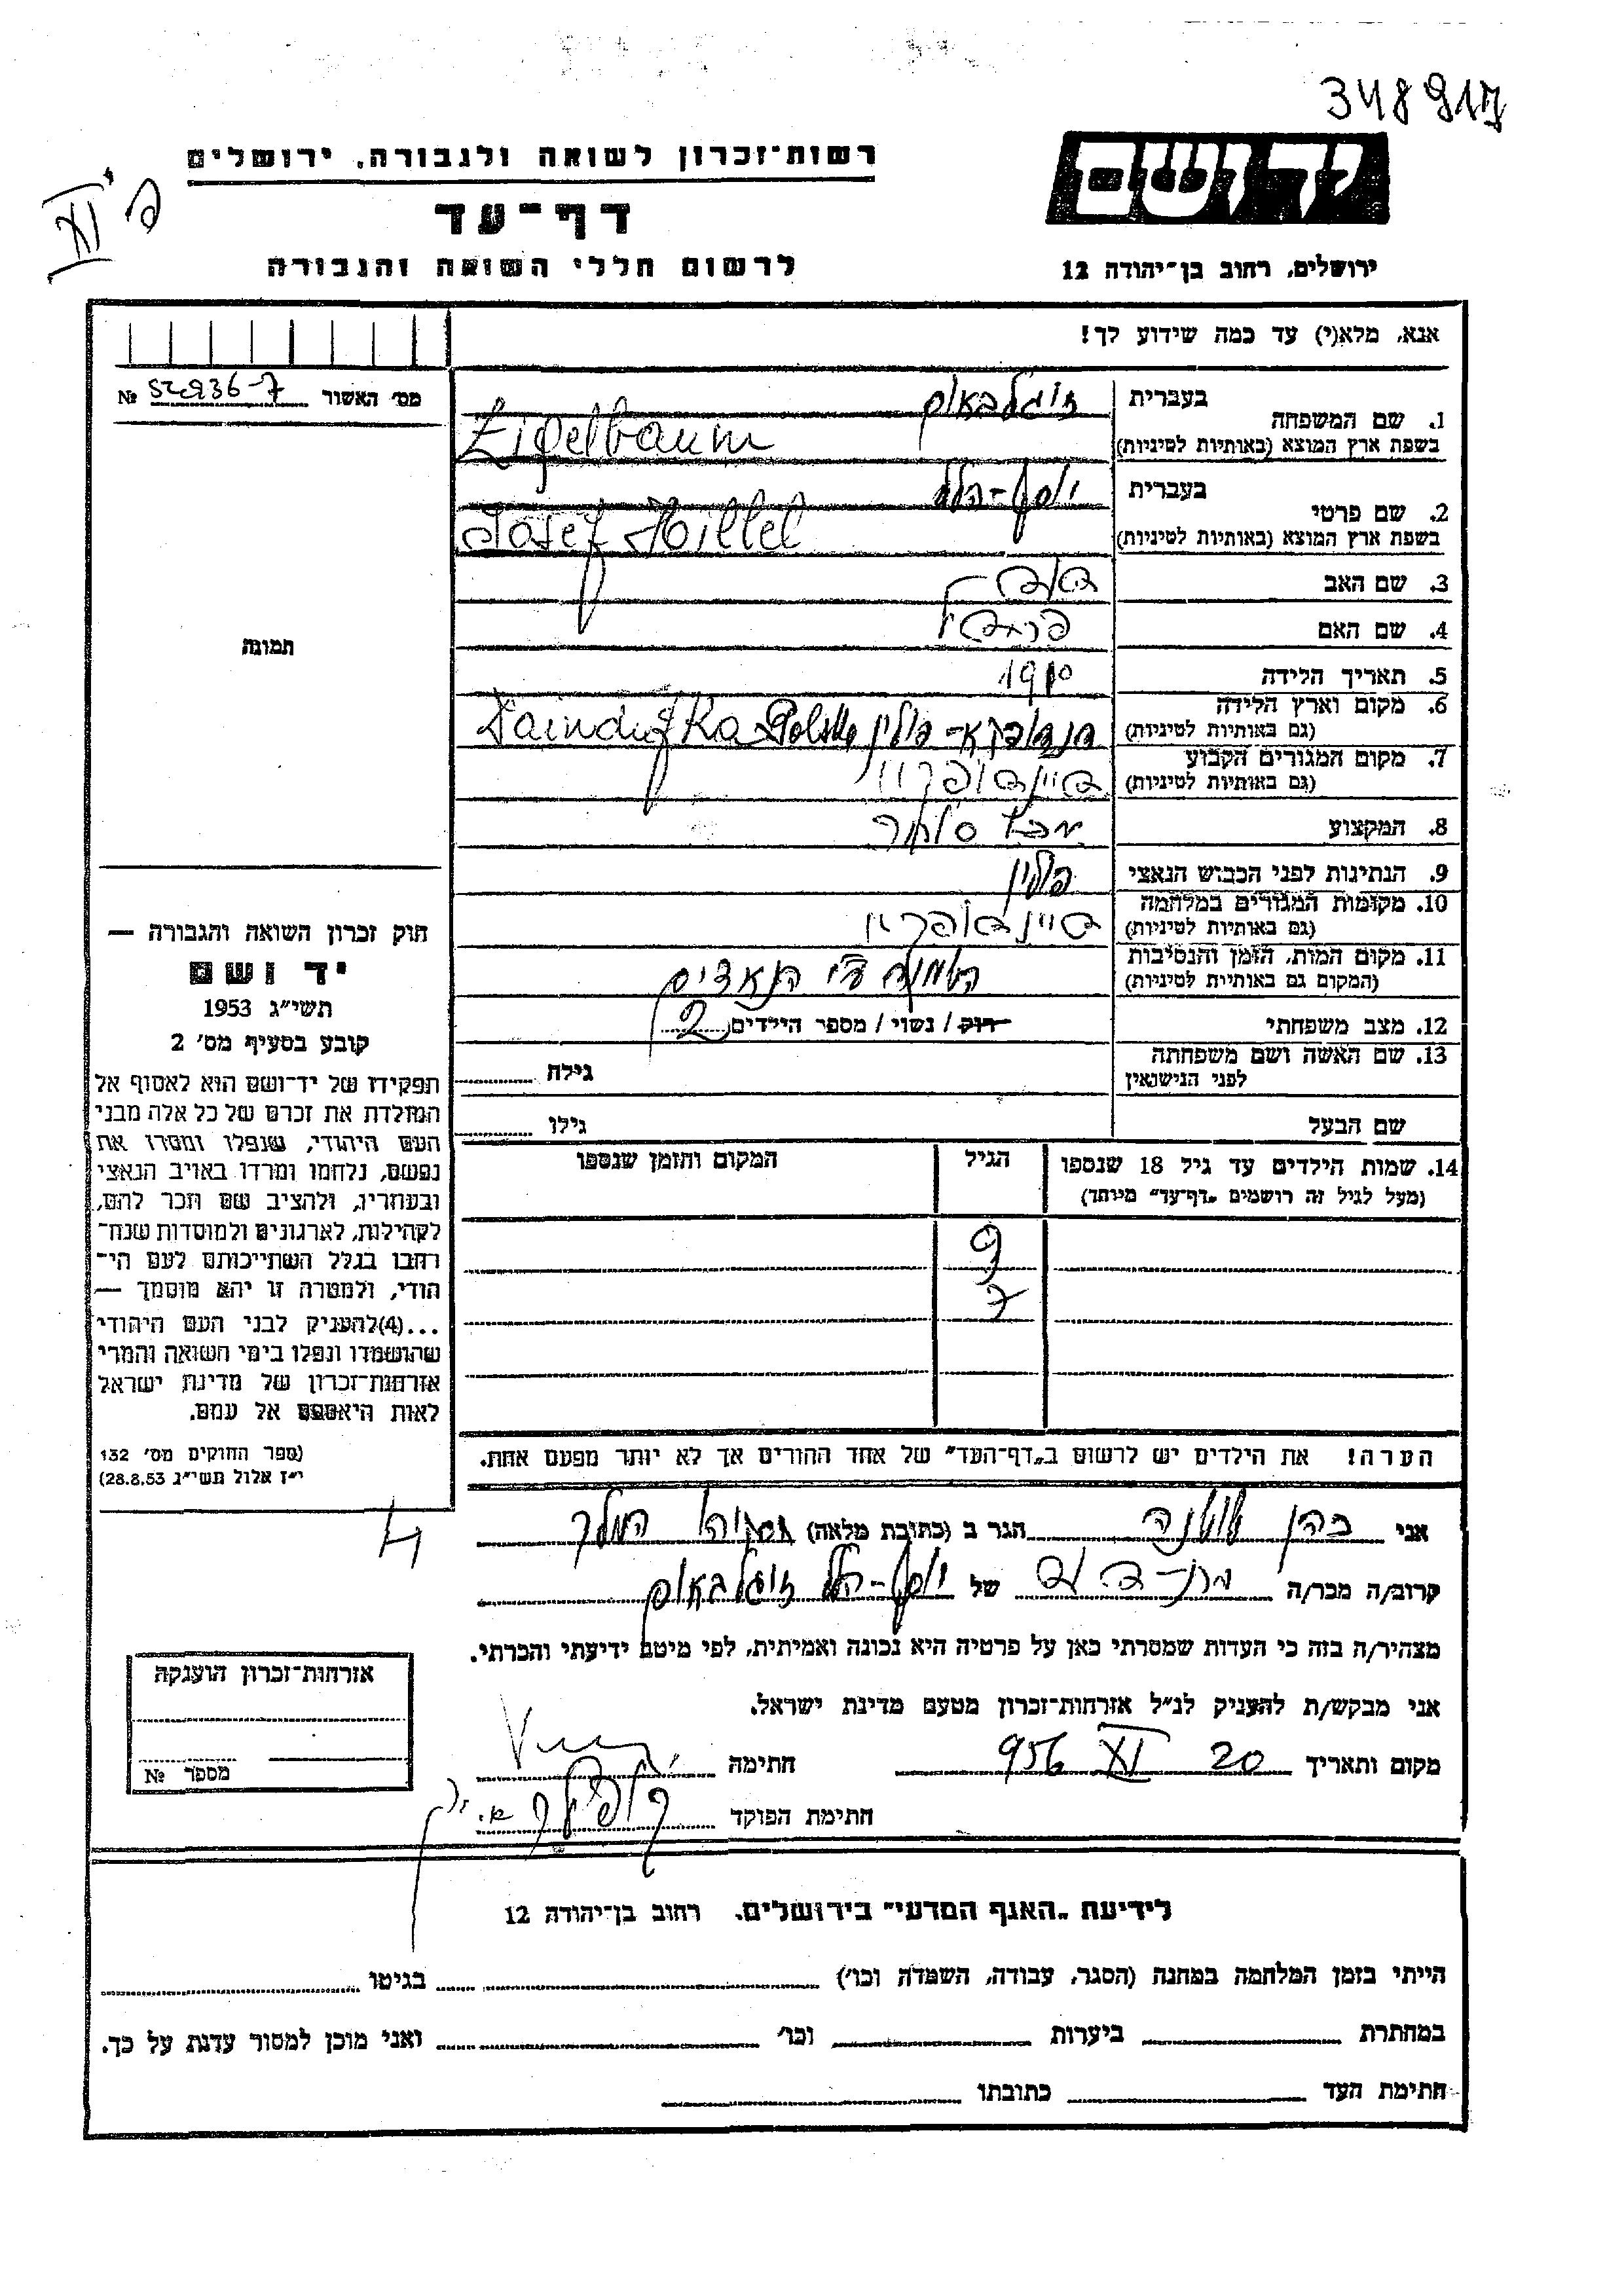 348917
רשות־זכרון לשואה ולגבורה, ירושלים
יד ושם
דף־עד
לרשום חללי השואה והגבורה
ירושלים, רחוב בן־יהודה 12
אנא, מלא(י) עד כמה שידוע לך!
מס' האשור № 52936-7
1. שם המשפחה
בעברית זיגלבאום
בשפת ארץ המוצא (באותיות לטיניות) Zigelbaum
2. שם פרטי
בעברית יוסף-הלל
בשפת ארץ המוצא (באותיות לטיניות) Josef Hillel
3. שם האב
4. שם האם
5. תאריך הלידה 1910
6. מקום וארץ הלידה
(גם באותיות לטיניות) פולין
7. מקום המגורים הקבוע
(גם באותיות לטיניות)
8. המקצוע סוחר
9. הנתינות לפני הכבוש הנאצי פולין
10. מקומות המגורים במלחמה
(גם באותיות לטיניות)
11. מקום המות, הזמן והנסיבות
(המקום גם באותיות לטיניות) הושמד ע"י הנאצים
12. מצב משפחתי רווק / נשוי / מספר הילדים 2
13. שם האשה ושם משפחתה
לפני הנישואין גילה
שם הבעל גילו
14. שמות הילדים עד גיל 18 שנספו הגיל המקום והזמן שנספו
(מעל לגיל זה רושמים "דף־עד" מיוחד)
9
7
הערה! את הילדים יש לרשום ב"דף־העד" של אחד ההורים אך לא יותר מפעם אחת.
אני כהן שושנה הגר ב (כתובת מלאה) המלך
קרוב/ה מכר/ה בן-דוד של יוסף-הלל זיגלבאום
מצהיר/ה בזה כי העדות שמסרתי כאן על פרטיה היא נכונה ואמיתית, לפי מיטב ידיעתי והכרתי.
אני מבקש/ת להעניק לנ"ל אזרחות־זכרון מטעם מדינת ישראל.
מקום ותאריך 20 XI 956 חתימה
חתימת הפוקד
תמונה
חוק זכרון השואה והגבורה —
יד ושם
תשי"ג 1953
קובע בסעיף מס' 2
תפקידו של יד־ושם הוא לאסוף אל
המולדת את זכרם של כל אלה מבני
העם היהודי, שנפלו ומסרו את
נפשם, נלחמו ומרדו באויב הנאצי
ובעוזריו, ולהציב שם וזכר להם,
לקהילות, לארגונים ולמוסדות שנח־
רבו בגלל השתייכותם לעם הי־
הודי, ולמטרה זו יהא מוסמך —
...(4)להעניק לבני העם היהודי
שהושמדו ונפלו בימי השואה והמרי
אזרחות־זכרון של מדינת ישראל
לאות היאספם אל עמם.
(ספר החוקים מס' 132
י"ז אלול תשי"ג 28.8.53)
אזרחות־זכרון הוענקה
מספר №
לידיעת "האגף המדעי" בירושלים, רחוב בן־יהודה 12
הייתי בזמן המלחמה במחנה (הסגר, עבודה, השמדה וכו') בגיטו
במחתרת ביערות וכו' ואני מוכן למסור עדות על כך.
חתימת העד כתובתו